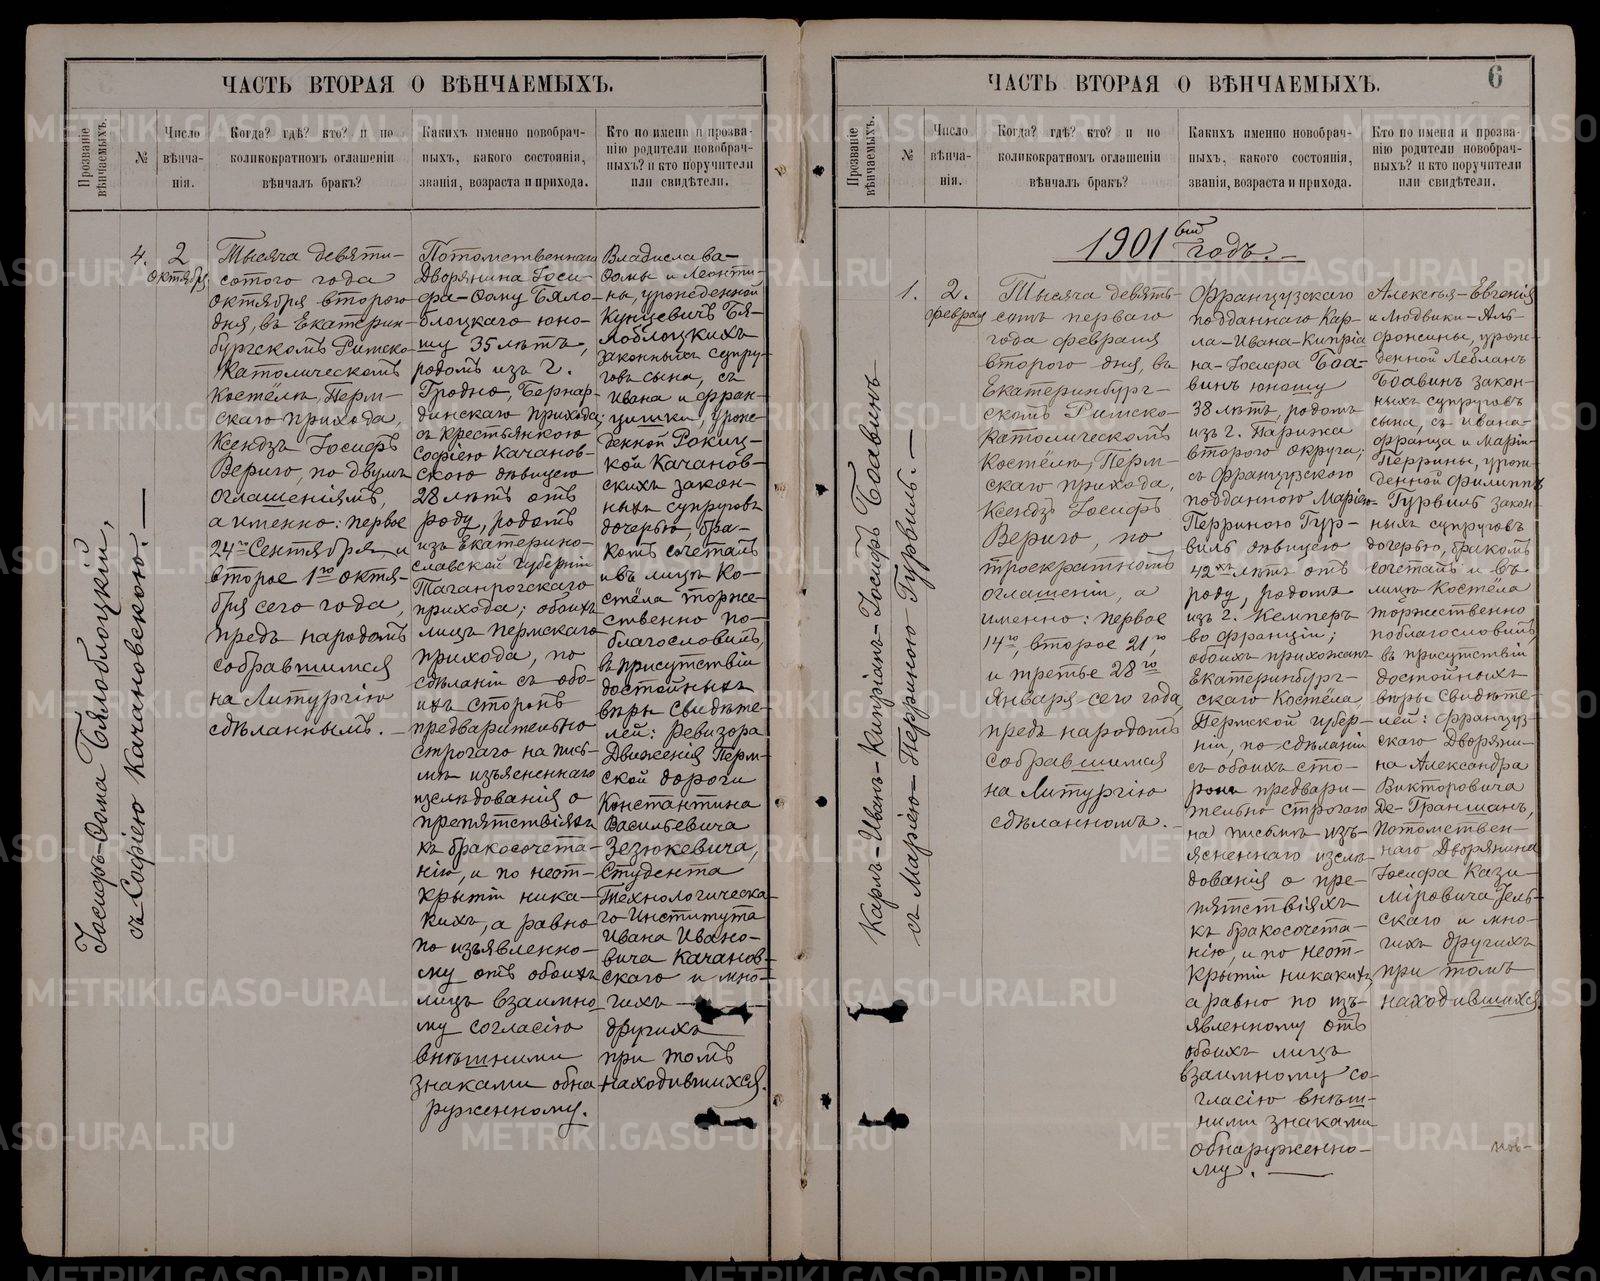 ЧАСТЬ ВТОРАЯ О ВѢНЧАЕМЫХЪ.
Прозваніе вѣнчаемыхъ.
№
Число
вѣнча-
нія.
Когда? гдѣ? кто? и по
коликократномъ оглашеніи
вѣнчалъ бракъ?
Какихъ именно новобрач-
ныхъ, какого состоянія,
званія, возраста и прихода.
Кто по имени и прозва-
нію родители новобрач-
ныхъ? и кто поручители
или свидѣтели.
Іосифъ-Ѳома Бялоблоцкій,
съ Софіею Качановскою.—
4.
2
октября
Тысяча девяти-
сотого года
октября второго
дня, въ Екатерин-
бургскомъ Римско-
Католическомъ
Костёлѣ, Перм-
скаго прихода,
Ксендзъ Іосифъ
Вериго, по двумъ
оглашеніямъ,
а именно: первое
24го Сентября и
второе 1го октя-
бря сего года,
предъ народомъ
собравшимся
на Литургію
сдѣланнымъ.
Потомственнаго
Дворянина Іоси-
фа-Ѳому Бяло-
блоцкаго юно-
шу 35 лѣтъ,
родомъ изъ г.
Гродно, Бернар-
динскаго прихода;
съ крестьянкою
Софіею Качанов-
скою дѣвицею
28 лѣтъ отъ
роду, родомъ
изъ Екатерино-
славской губерніи
Таганрогскаго
прихода; обоихъ
лицъ Пермскаго
прихода, по
сдѣланіи съ обо-
ихъ сторонъ
предварительно
строгаго на пись-
мѣ изъясненнаго
изслѣдованія о
препятствіяхъ
къ бракосочета-
нію, и по неот-
крытіи ника-
кихъ, а равно
по изъявленно-
му отъ обоихъ
лицъ взаимно
му согласію
внѣшними
знаками обна-
руженному.
Владислава-
Ѳомы и Леонти-
ны, урожденной
Кунцевичъ Бя-
лоблоцкихъ
законныхъ супру-
говъ сына, съ
Ивана и Фран-
цишки, урож-
денной Рокиц-
кой Качанов-
скихъ закон-
ныхъ супруговъ
дочерью, бра-
комъ сочеталъ
и въ лицѣ Ко-
стёла торже-
ственно по-
благословилъ,
въ присутствіи
достойныхъ
вѣры свидѣте-
лей: Ревизора
Движенія Перм-
ской дороги
Константина
Васильевича
Зезюкевича,
Студента
Технологическа-
го Института
Ивана Ивано-
вича Качанов-
скаго и мно-
гихъ
другихъ
при томъ
находившихся.
ЧАСТЬ ВТОРАЯ О ВѢНЧАЕМЫХЪ.
6
Прозваніе вѣнчаемыхъ.
№
Число
вѣнча-
нія.
Когда? гдѣ? кто? и по
коликократномъ оглашеніи
вѣнчалъ бракъ?
Какихъ именно новобрач-
ныхъ, какого состоянія,
званія, возраста и прихода.
Кто по имени и прозва-
нію родители новобрач-
ныхъ? и кто поручители
или свидѣтели.
1901 вый годъ.
Карлъ-Иванъ-Кипріанъ-Іосифъ Боавинъ
съ Маріею-Перриною Гурвиль.—
1.
2.
февраля
Тысяча девять-
сотъ перваго
года февраля
второго дня, въ
Екатеринбург-
скомъ Римско-
Католическомъ
Костёлѣ, Перм-
скаго прихода,
Ксендзъ Іосифъ
Вериго, по
троекратномъ
оглашеніи, а
именно: первое
14го, второе 21го,
и третье 28го
Января сего года,
предъ народомъ
собравшимся
на Литургію
сдѣланномъ.
Французскаго
подданнаго Кар-
ла-Ивана-Кипріа
на-Іосифа Боа-
винъ юношу
38 лѣтъ, родомъ
изъ г. Парижа
второго округа;
съ французскою
подданною Маріею-
Перриною Гур-
виль дѣвицею
42хъ лѣтъ отъ
роду, родомъ
изъ г. Кемперъ
во Франціи;
обоихъ прихожанъ
Екатеринбург-
скаго Костёла
Пермской губер-
ніи, по сдѣланіи
съ обоихъ сто-
ронъ предвари-
тельно строгаго
на письмѣ изъ-
ясненнаго изслѣ-
дованія о пре-
пятствіяхъ
къ бракосочета-
нію, и по неот-
крытіи никакихъ,
а равно по изъ-
явленному отъ
обоихъ лицъ
взаимному со-
гласію внѣш-
ними знаками
обнаруженно-
му.
Алексѣя-Евгенія
и Людвики-Аль-
фонсины, урож-
денной Лебланъ
Боавинъ закон-
ныхъ супруговъ
сына, съ Ивана-
Франца и Маріи-
Перрины, урож-
денной Филиппъ
Гурвиль закон-
ныхъ супруговъ
дочерью, бракомъ
сочеталъ и въ
лицѣ Костёла
торжественно
поблагословилъ,
въ присутствіи
достойныхъ
вѣры свидѣте-
лей: француз-
скаго Дворяни-
на Александра
Викторовича
Де-Граншанъ,
Потомствен-
наго Дворянина
Іосифа Кази-
міровича Гель-
скаго и мно-
гихъ другихъ
при томъ
находившихся.
METRIKI.GASO-URAL.RU